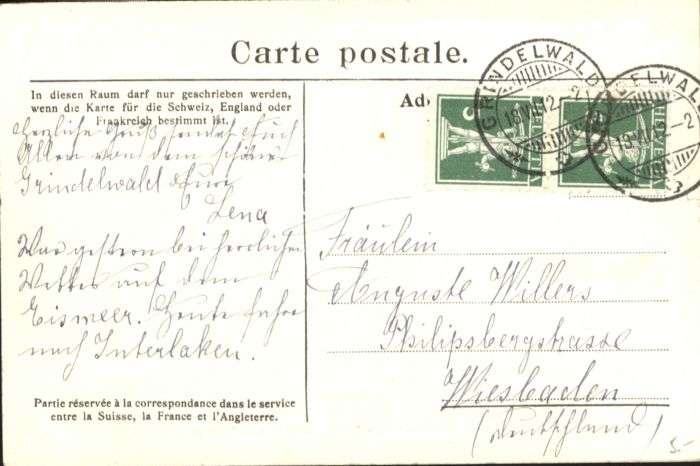 Carte postale.
In diesen Raum darf nur geschrieben werden,
wenn die Karte für die Schweiz, England oder
Frankreich bestimmt ist.
Ad
GRINDELWALD
GRINDELWALD
HELVETIA
HELVETIA
Herzliche Grüße sendet Euch
Allen von dem schönen
Grindelwald Eure
Lena
War gestern bei herrlichem
Wetter auf dem
Eismeer. Heute fahre
nach Interlaken.
Fräulein
Auguste Willers
Philipsbergstrasse
Wiesbaden
(Deutschland)
Partie réservée à la correspondance dans le service
entre la Suisse, la France et l'Angleterre.
5.-